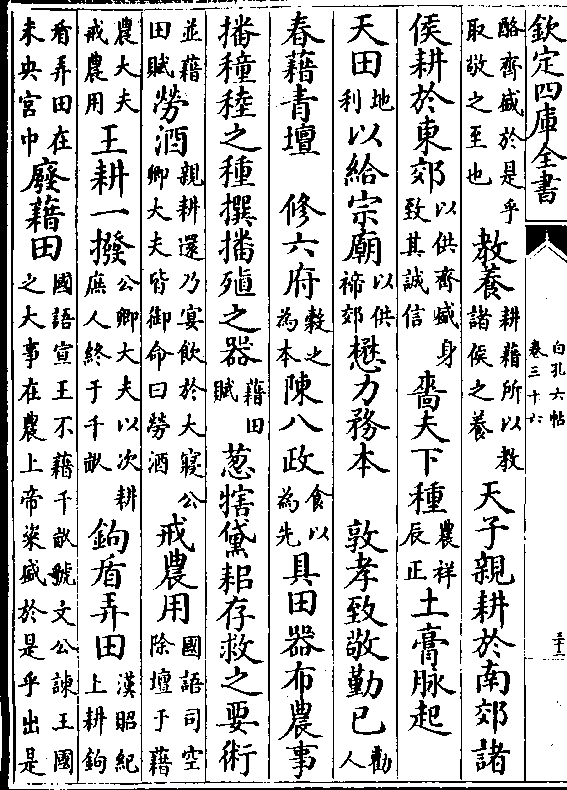 欽定四庫全書
白孔六帖
卷三十六
酪齊盛於是乎取敬之至也 教養 耕藉所以教諸侯之養 天子親耕於南郊諸
侯耕於東郊 以供齊盛身致其誠信 嗇夫下種 農祥辰正 土膏脉起
天田 地利 以給宗廟 以供禘郊 懋力務本 敦孝致敬勤已 勸人
春藉青壇 修六府 穀之為本 陳八政 食以為先 具田器布農事
播穜稑之種撰播殖之器 藉田賦 葱犗黛耜存救之要術
並藉田賦 勞酒 親耕還乃宴飲於大寢公卿大夫皆御命曰勞酒 戒農用 國語司空除壇于藉
農大夫戒農用 王耕一撥 公卿大夫以次耕庶人終于千畝 鉤盾弄田 漢昭紀上耕鉤
盾弄田在未央宮中 廢藉田 國語宣王不藉千畝虢文公諫王國之大事在農上帝粢盛於是乎出是